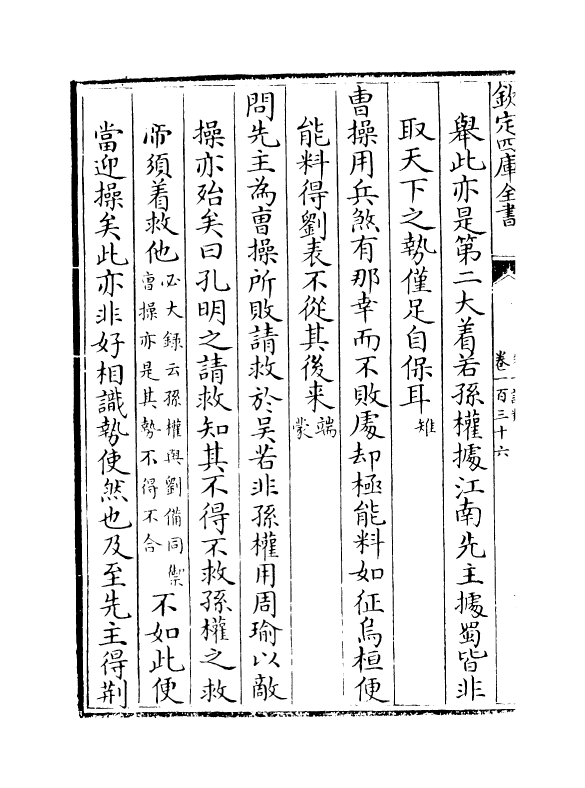 欽定四庫全書
卷一百三十六
舉此亦是第二大着若孫權據江南先主據蜀皆非
取天下之勢僅足自保耳雉
曹操用兵煞有那幸而不敗處却極能料如征烏桓便
能料得劉表不從其後来端蒙
問先主為曹操所敗請救於吳若非孫權用周瑜以敵
操亦殆矣曰孔明之請救知其不得不救孫權之救
帝須着救他必大録云孫權與劉備同禦曹操亦是其勢不得不合不如此便
當迎操矣此亦非好相識勢使然也及至先主得荆